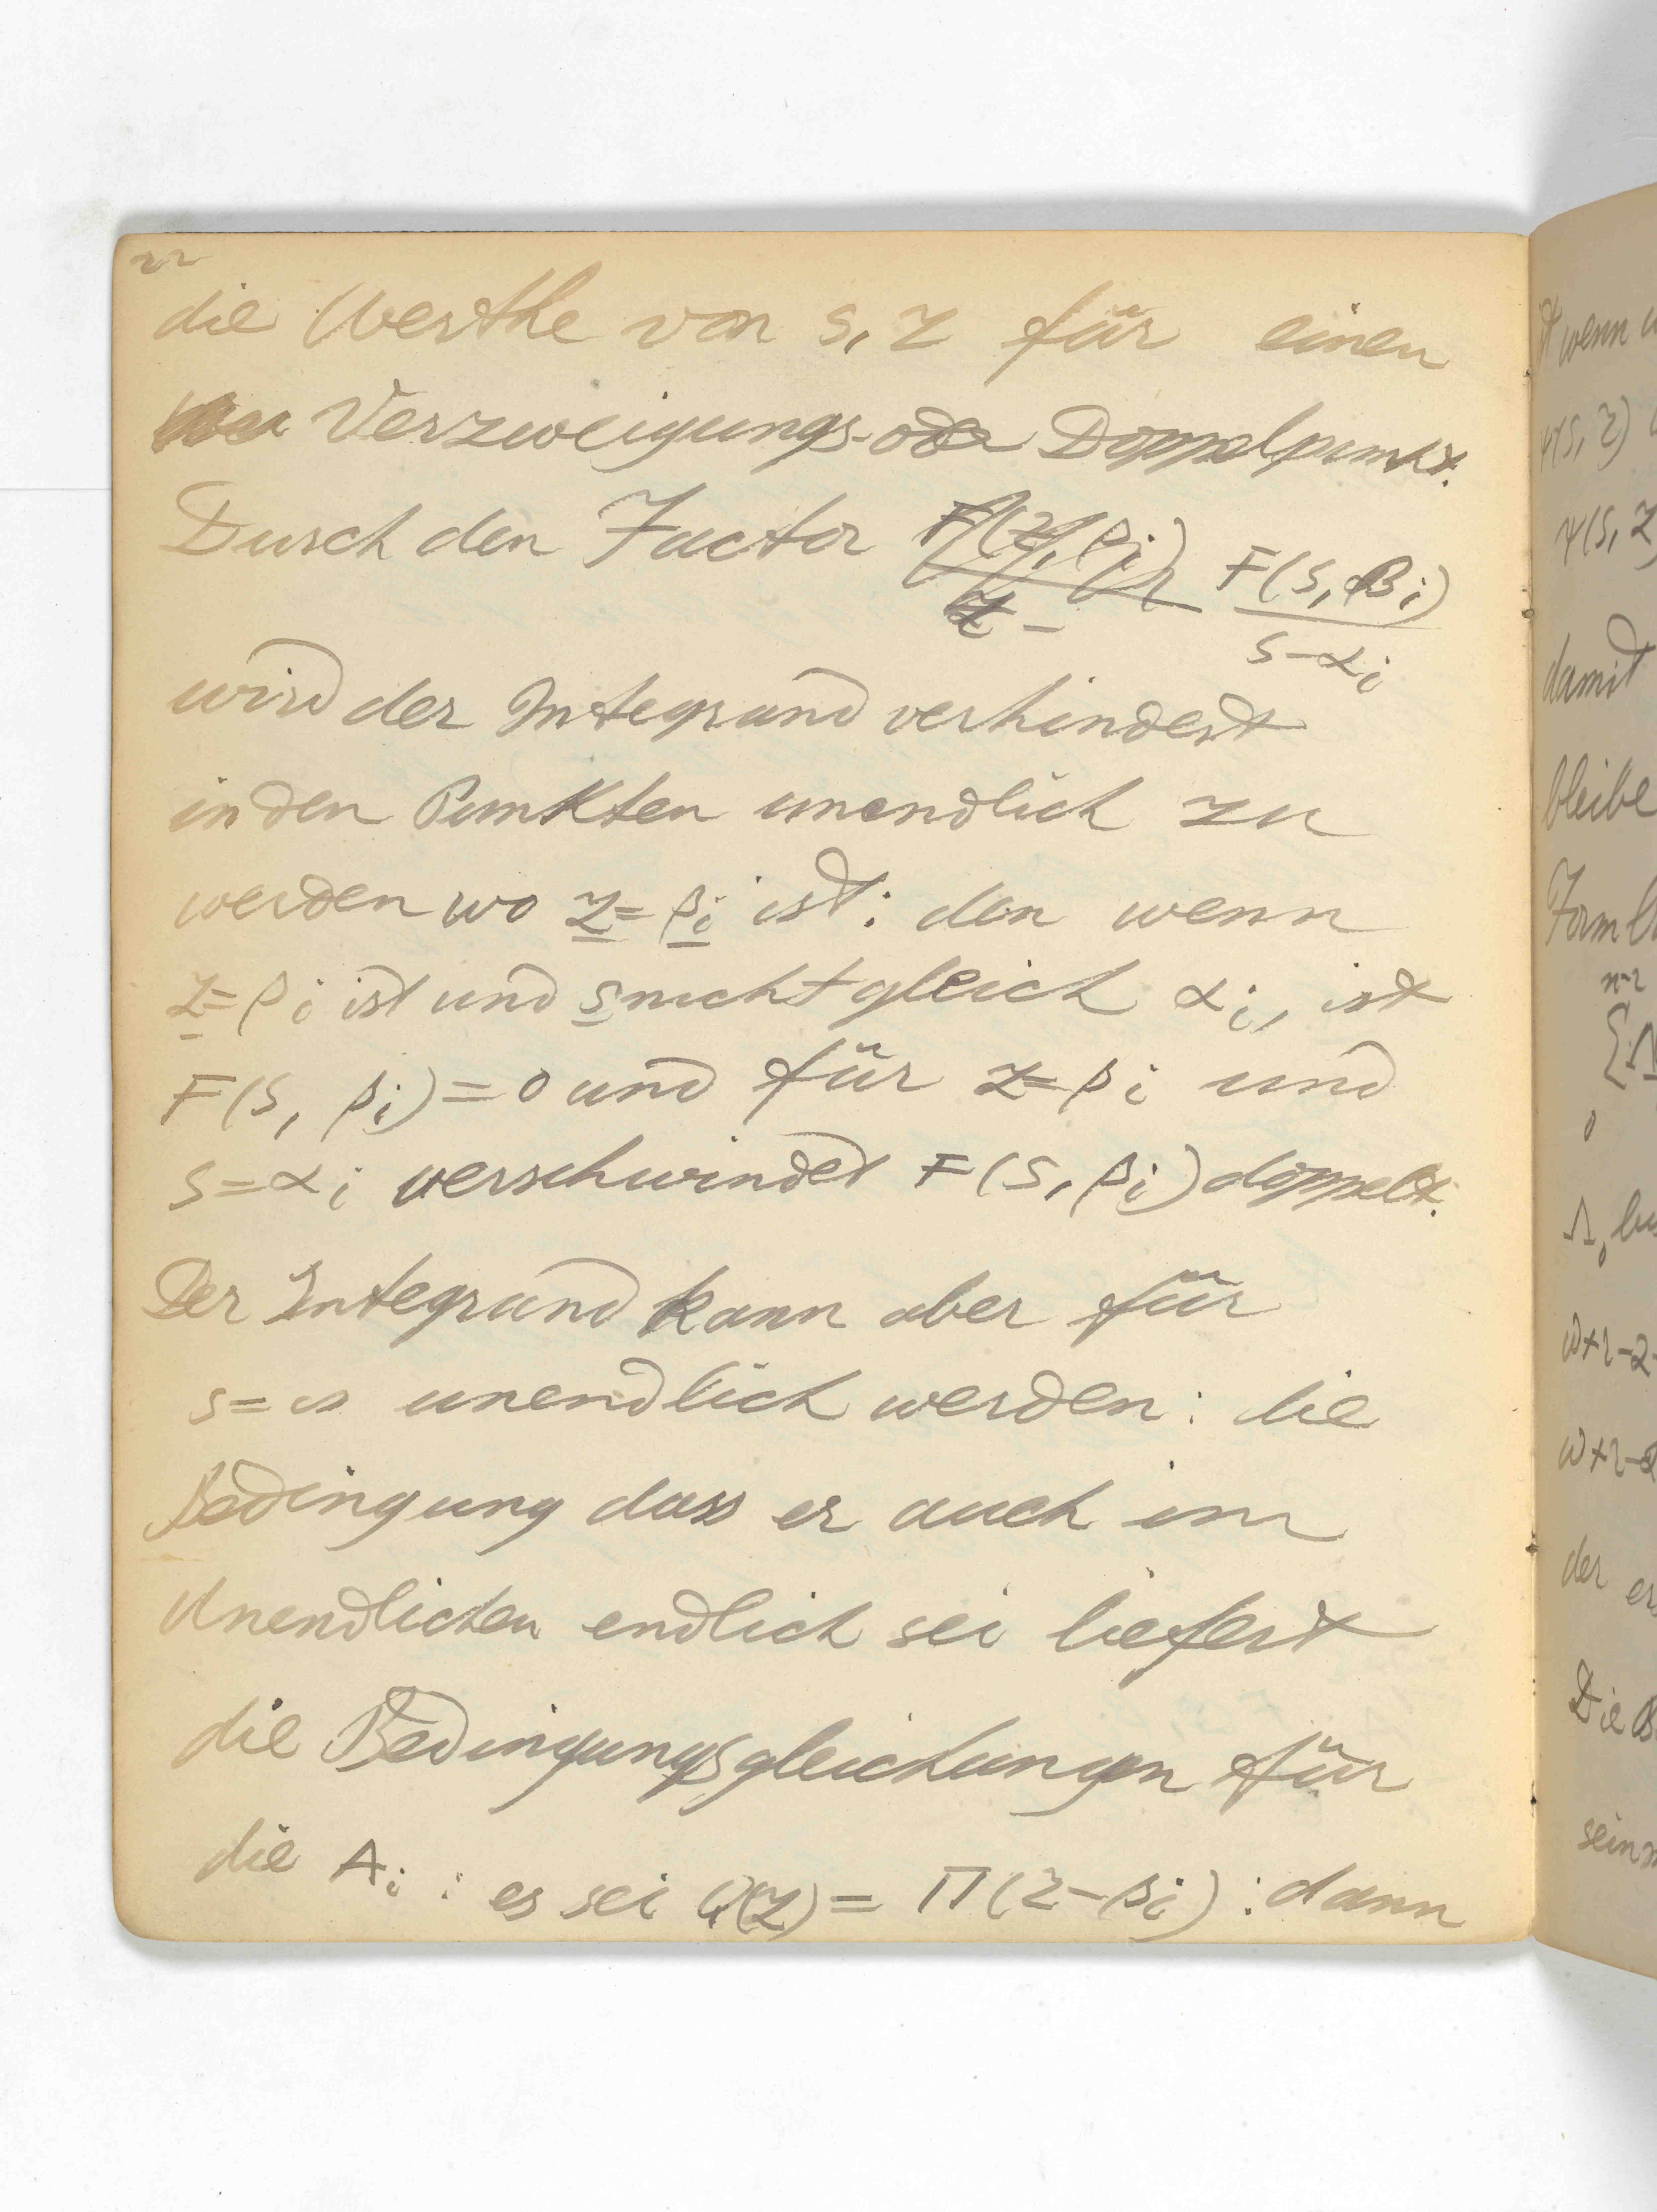 22
die Werthe von s, z für einen
Verzweigungs- oder Doppelpunkt.
Durch den Factor F(z, βi) / z – F(s, βi) / s–αi
wird der Integrand verhindert
in den Punkten unendlich zu
werden wo z=βi ist: den wenn
z=βi ist und s nicht gleich αi, ist
F(s, βi)=0 und für z=βi und
s=αi verschwindet F(s, βi) doppelt.
Der Integrand kann aber für
s=∞ unendlich werden: die
Bedingung dass er auch im
Unendlichen endlich sei liefert
die Bedingungsgleichungen für
die Ai : es sei φ(z) = Π(z–βi) : dann
wenn
ψ(s, z)
ψ(s, z
damit
bleibe
n-2
0
ω+r-2-
der
Die B
sein